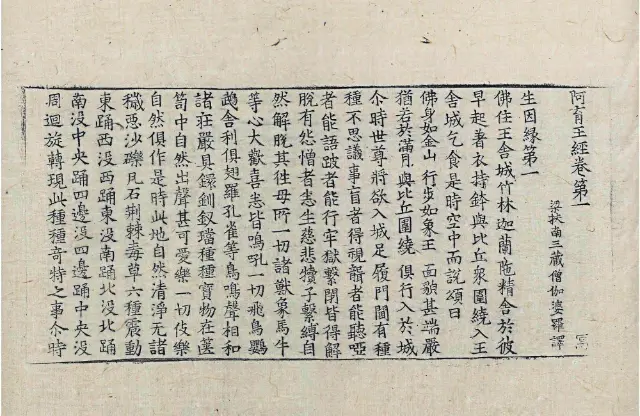 阿育王經卷第一
梁扶南三藏僧伽婆羅譯
生因緣第一
佛住王舍城竹林迦蘭陁精舍於彼
早起著衣持鉢與比丘衆圍繞入王
舍城乞食是時空中而說頌曰
佛身如金山 行步如象王 面貌甚端嚴
猶若於滿月 與比丘圍繞 俱行入於城
尒時世尊將欲入城足履門閫有種
種不思議事盲者得視聾者能聽啞
者能語跛者能行牢獄繫閉皆得解
脫有怨憎者悉生慈悲犢子繫縛自
然解脫其往母所一切諸獸象馬牛
等心大歡喜悉皆鳴吼一切飛鳥鸚
鵡舍利俱翅羅孔雀等鳥鳴聲相和
諸莊嚴具鐶釧釵璫種種寶物在篋
笥中自然出聲甚可愛樂一切伎樂
自然俱作是時此地自然清淨无諸
穢惡沙礫凡石荆棘毒草六種震動
東踊西没西踊東没南踊北没北踊
南没中央踊四邊没四邊踊中央没
周迴旋轉現此種種奇特之事尒時